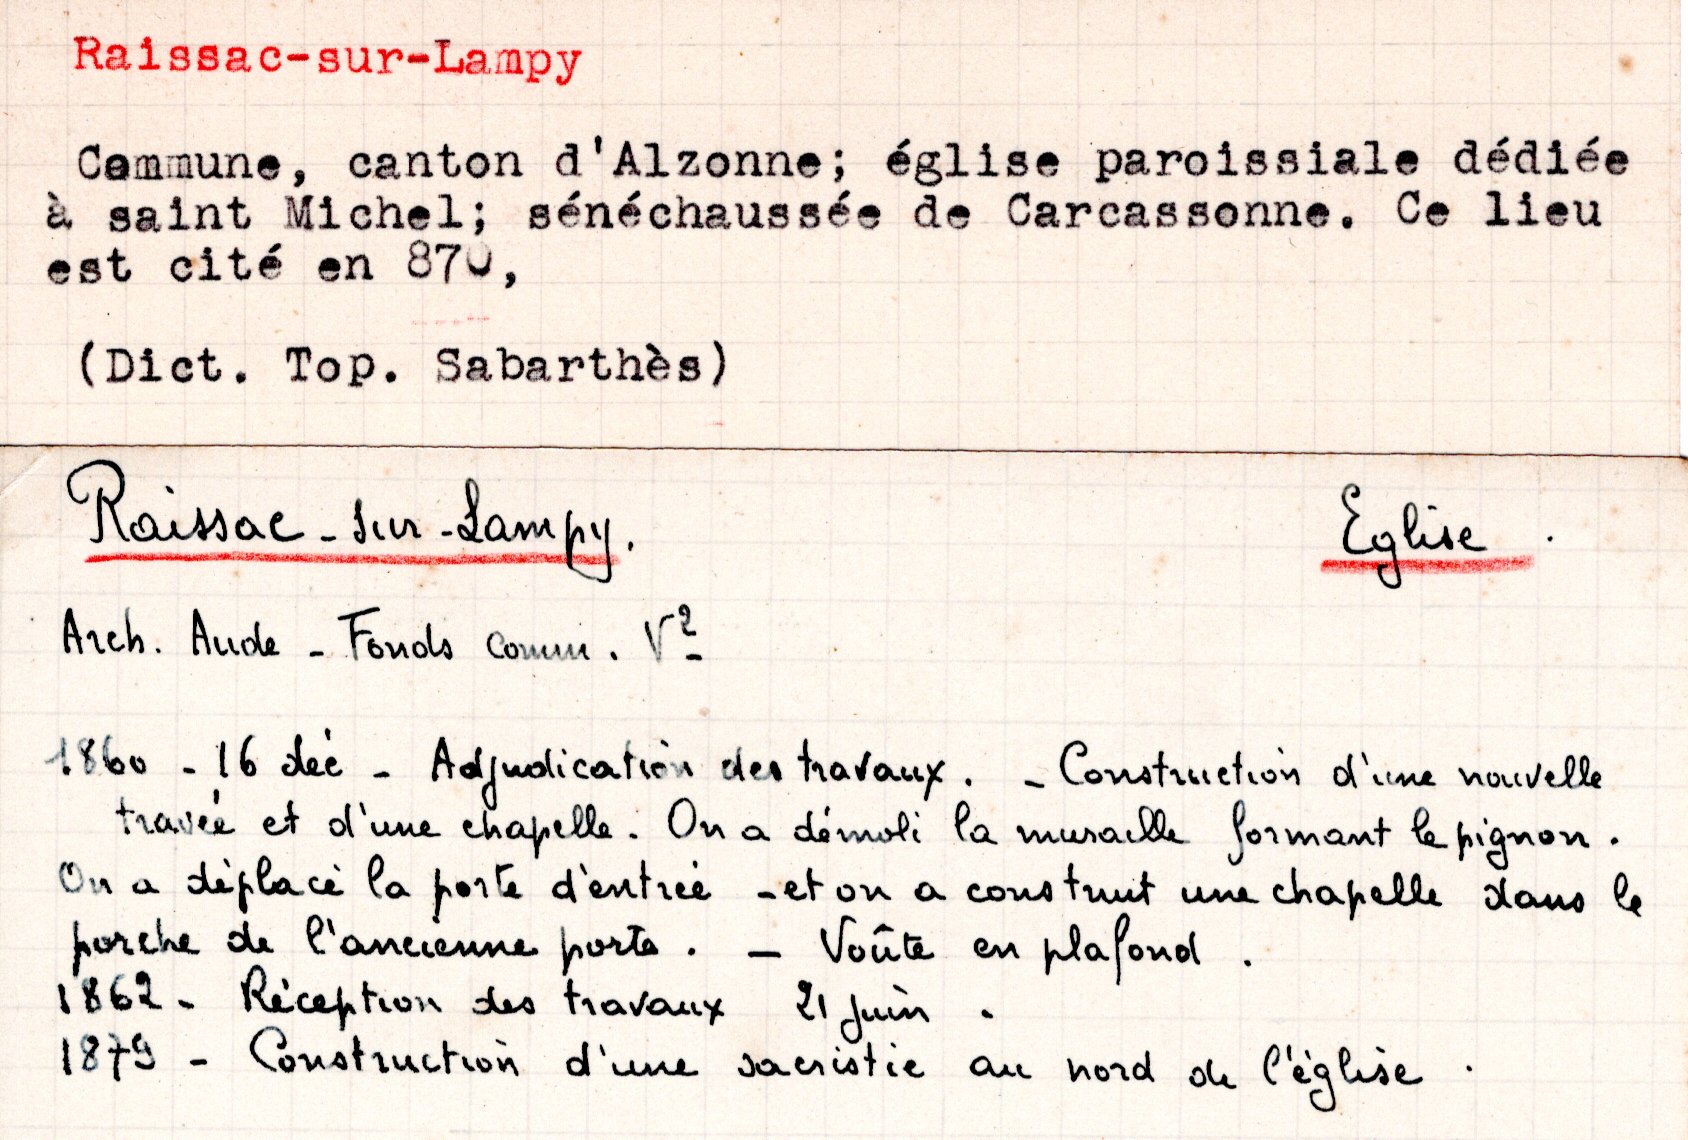 Raissac-sur-Lampy
Commune, canton d'Alzonne; église paroissiale dédiée
à saint Michel; sénéchaussée de Carcassonne. Ce lieu
est cité en 870,
(Dict. Top. Sabarthès)
Raissac-sur-Lampy.	Eglise.
Arch. Aude - Fonds Comm. V²
1860 - 16 déc - Adjudication des travaux. - Construction d'une nouvelle
travée et d'une chapelle. On a démoli la muraille formant le pignon.
On a déplacé la porte d'entrée - et on a construit une chapelle dans le
porche de l'ancienne porte. - Voûte en plafond.
1862 - Réception des travaux 21 juin.
1879 - Construction d'une sacristie au nord de l'église.